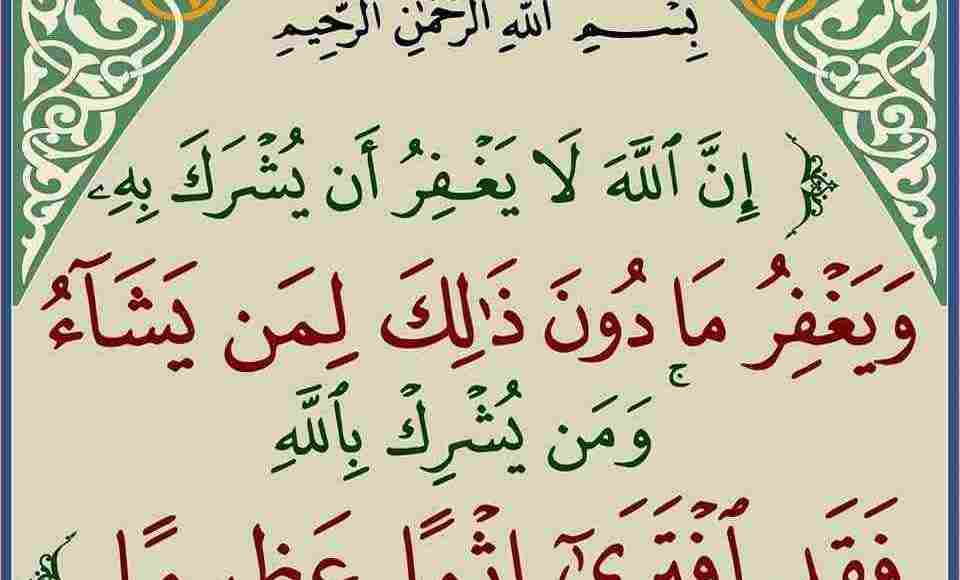 بِسْمِ اللَّهِ الرَّحْمَٰنِ الرَّحِيمِ
﴿ إِنَّ ٱللَّهَ لَا يَغْفِرُ أَن يُشْرَكَ بِهِۦ
وَيَغْفِرُ مَا دُونَ ذَٰلِكَ لِمَن يَشَآءُ ۚ
وَمَن يُشْرِكْ بِٱللَّهِ
فَقَدِ ٱفْتَرَىٰٓ إِثْمًا عَظِيمًا ﴾